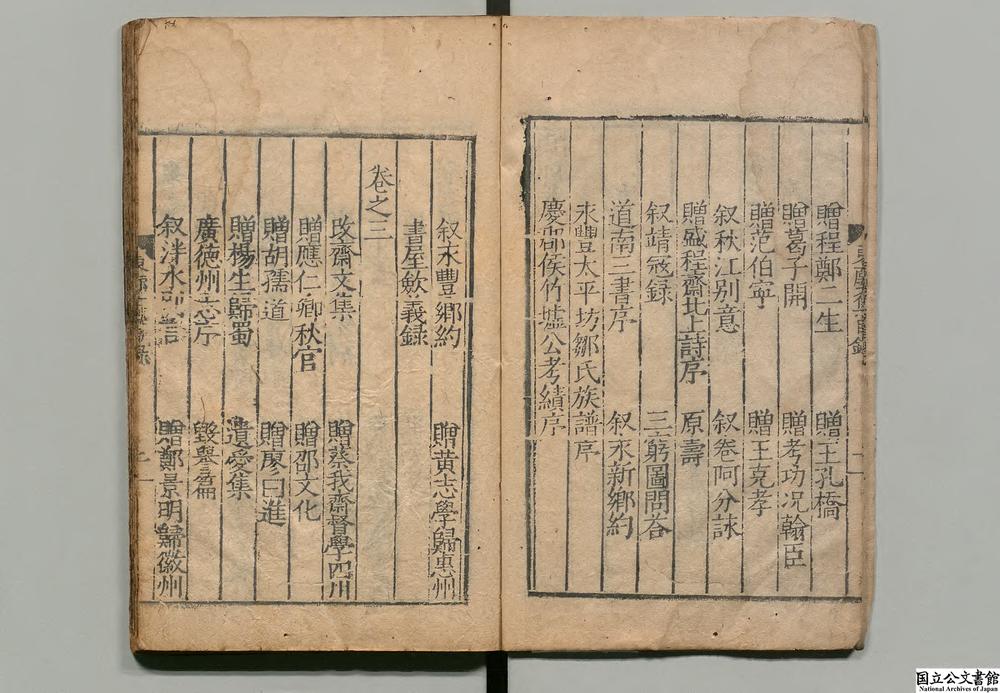 贈程鄭二生 贈王孔橋
贈葛子開 贈考功况翰臣
贈范伯寧 贈王克孝
叙秋江别意 叙卷阿分詠
贈盛程齋北上詩序 原壽
叙靖冦録 三窮圖問荅
道南三書序 叙永新鄉約
永豐太平坊鄒氏族譜序
慶郡侯竹墟公考績序
叙永豐鄉約 贈黄志學歸惠州
書屋歛義録
卷之三
改齋文集 贈蔡我齋督學四川
贈應仁卿秋官 贈邵文化
贈胡孺道 贈廖曰進
贈楊生歸蜀 遺愛集
廣德州志序 毀譽篇
叙泮水 贈鄭景明歸徽州
国立公文書館
National Archives of Japan